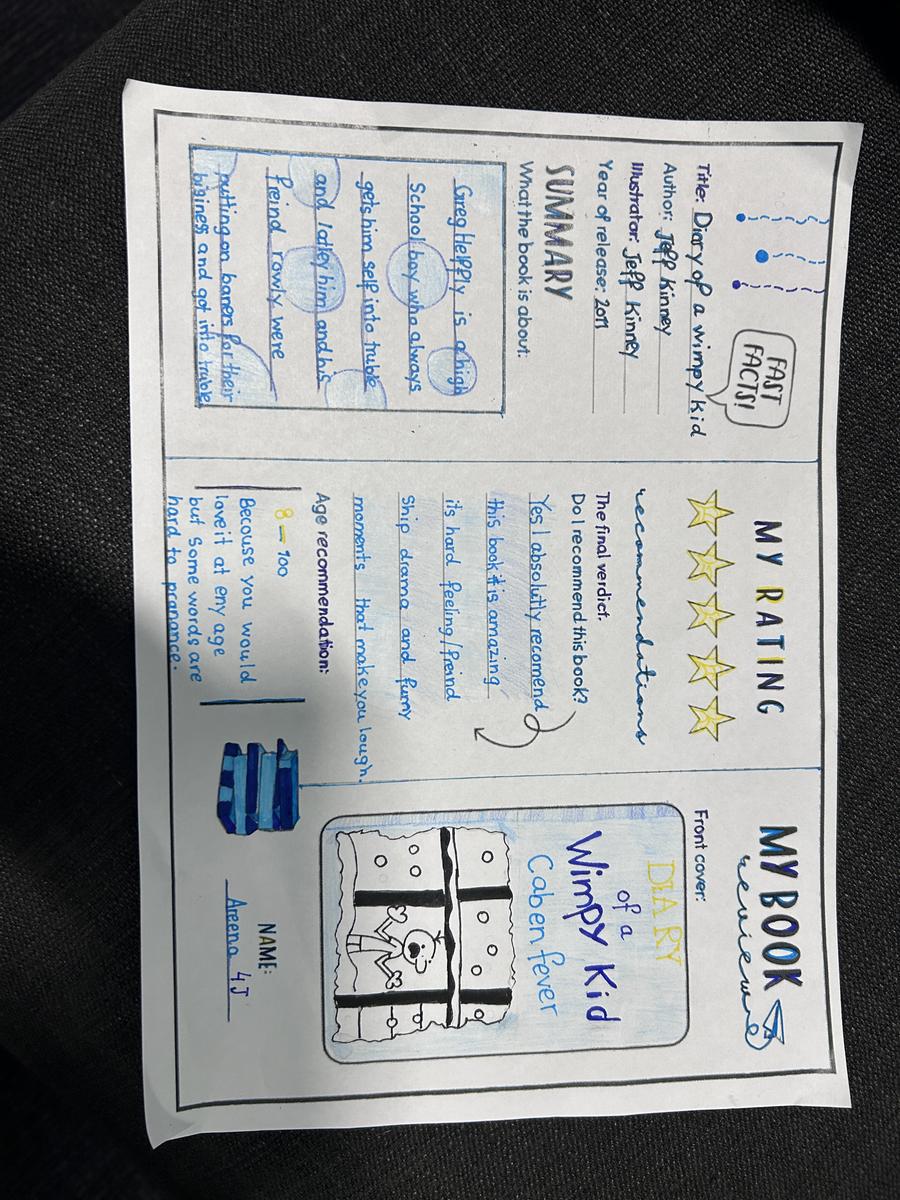 FAST
FACTS!
Title: Diary of a wimpy kid
Author: Jeff kinney
Illustrator: Jeff Kinney
Year of release: 2011
SUMMARY
What the book is about:
Greg Heffly is a high
School boy who always
gets him self into truble
and latley him and his
freind rowly were
putting on baners for their
biginess and got into truble
MY RATING
recommendations
The final verdict.
Do I recommend this book?
Yes I absolutly recomend
this book it is amazing
its hard feeling/freind
Ship drama and funny
moments that make you lough.
Age recommendation:
8-100
Becouse you would
love it at eny age
but Some words are
hard to pronance.
MY BOOK
review
Front cover:
DIARY
of a
Wimpy Kid
Caben fever
NAME:
Areena 4J